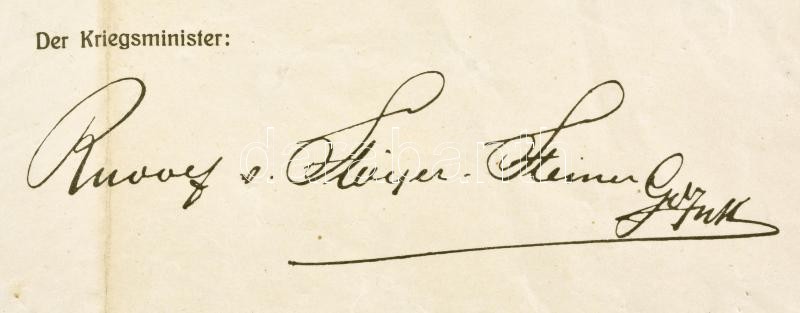 Der Kriegsminister:
Rudolf v. Stöger-Steiner GdInft
darabanth